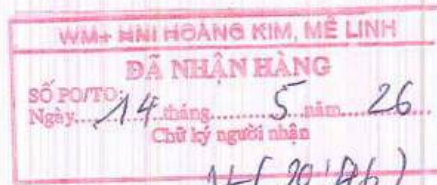 WM+ HNI HOÀNG KIM, MÊ LINH
ĐÃ NHẬN HÀNG
SỐ PO/TO:
Ngày... 14 tháng......... 5 năm.... 26
Chữ ký người nhận